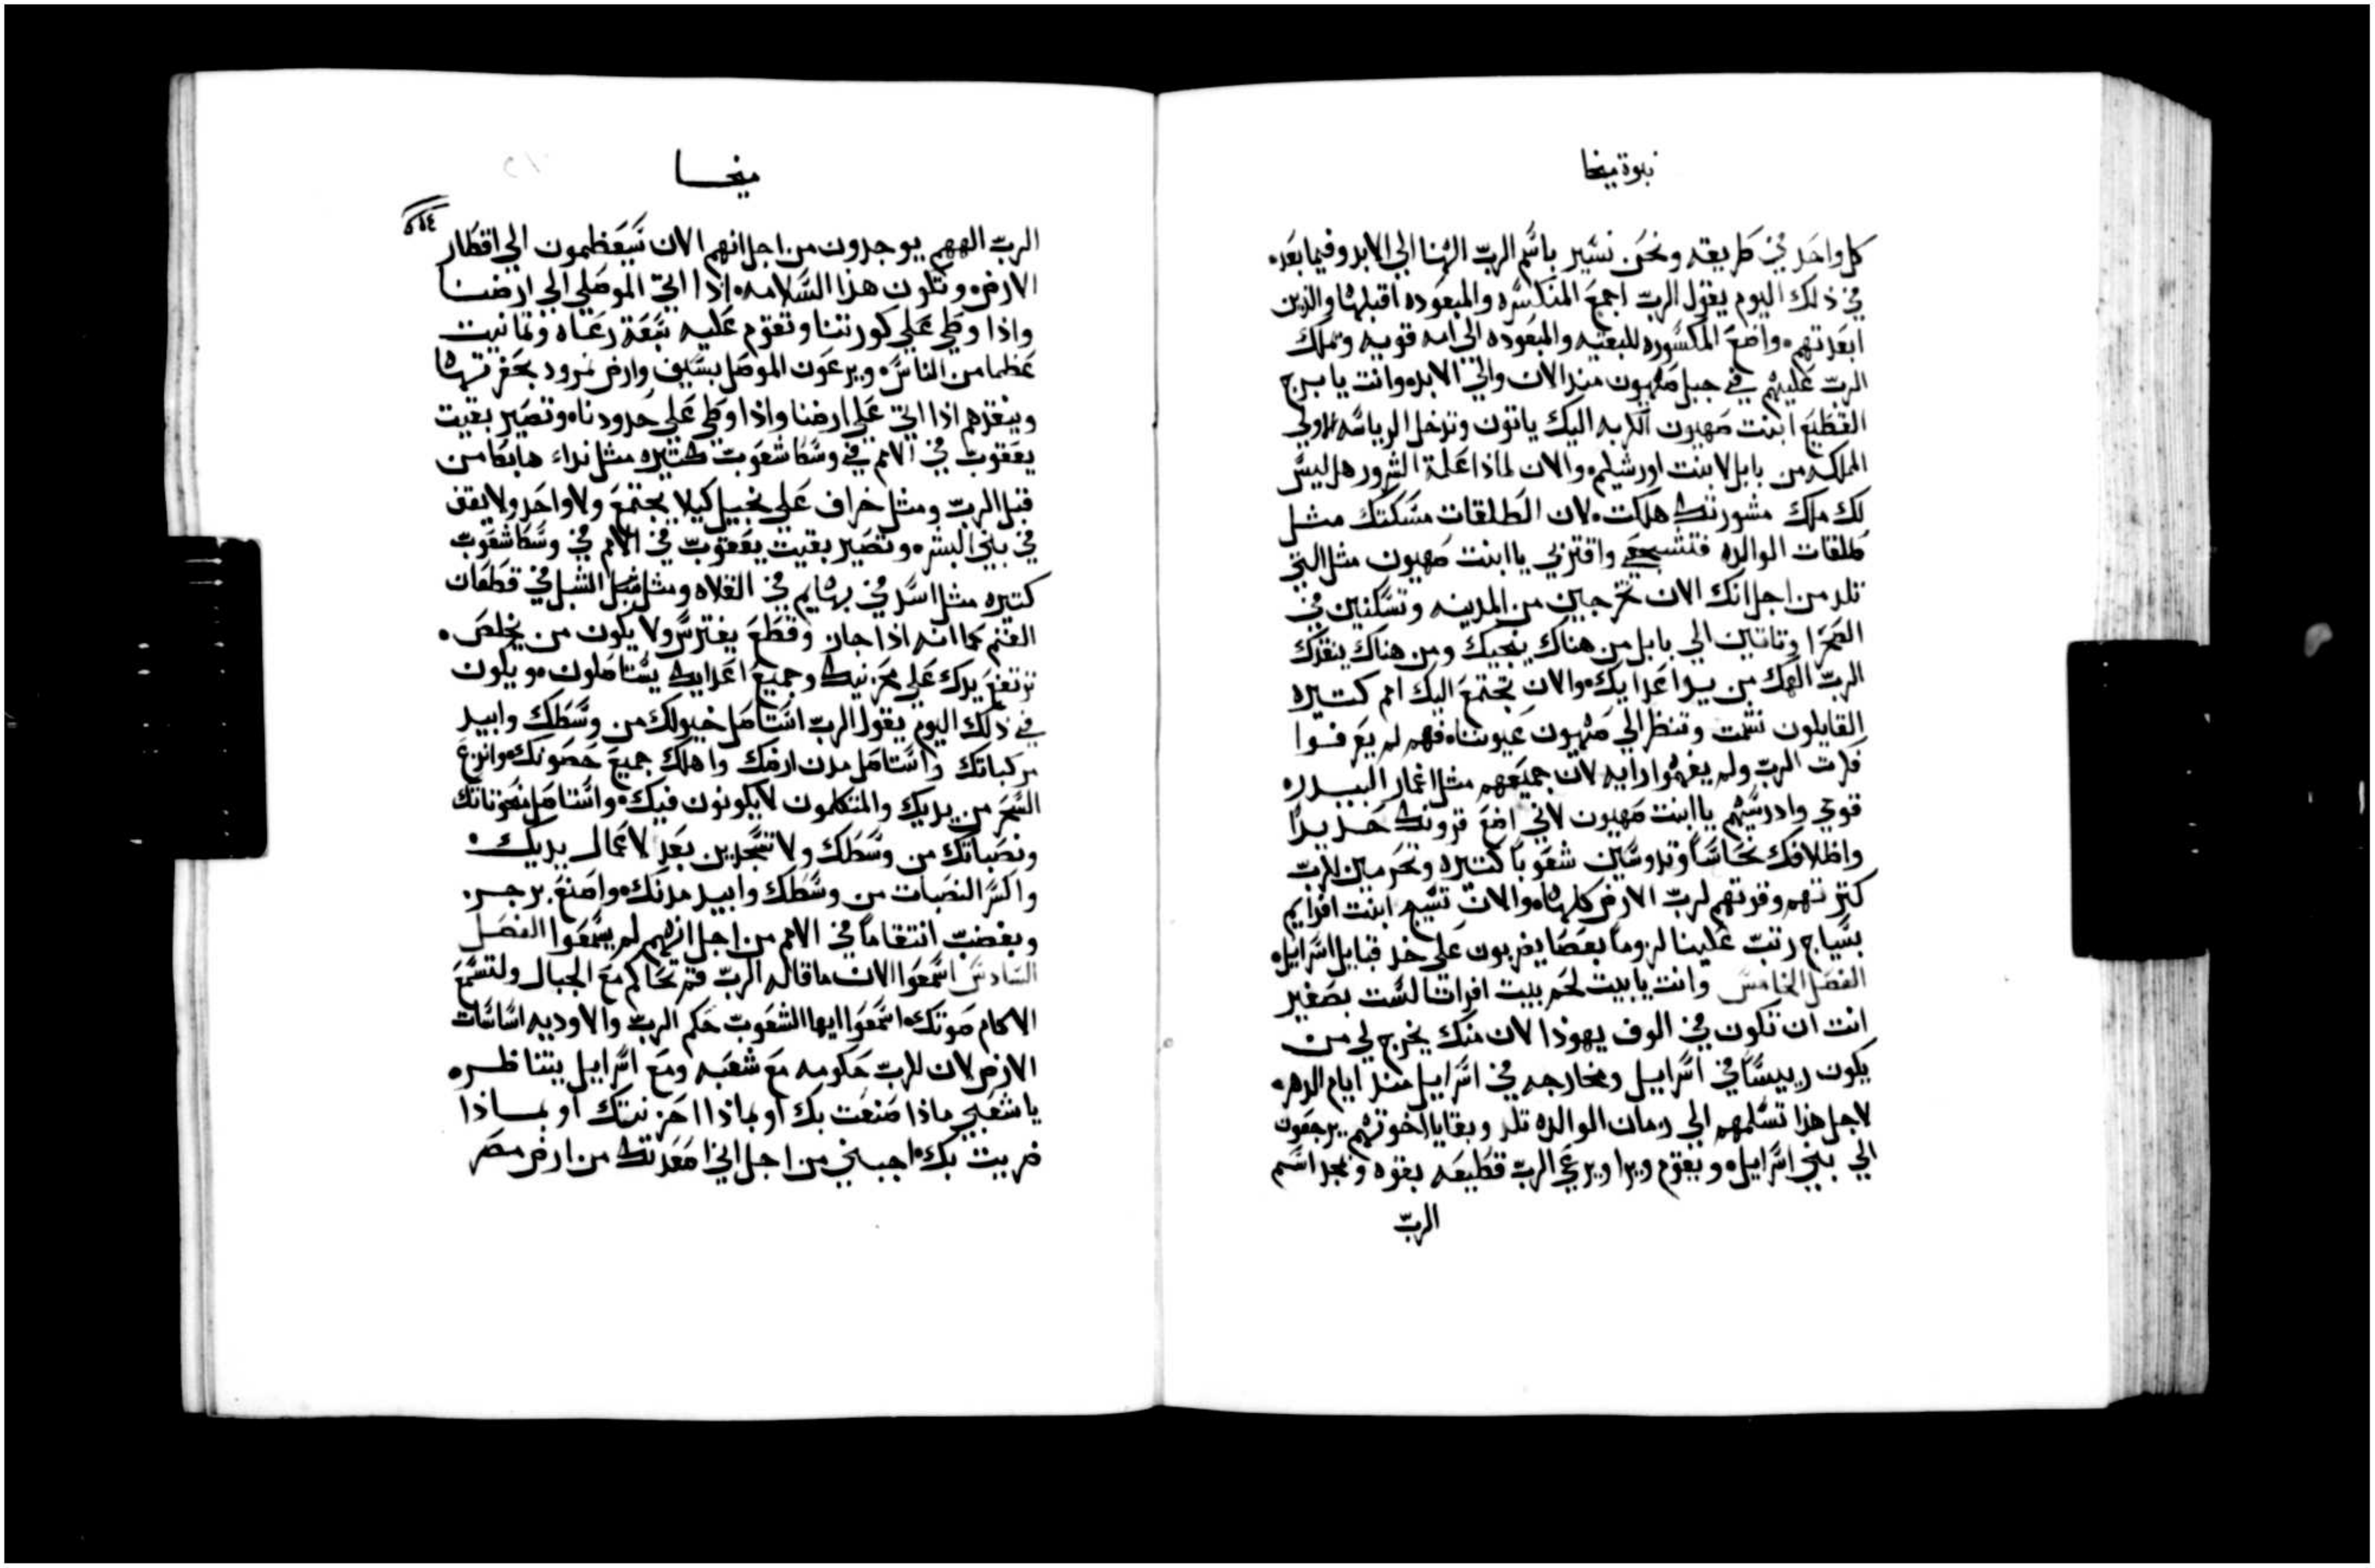 نبوة ميخا
كل واحد في طريقه ونحن نسير باسم الرب الهنا الي الابد وفيما بعد.
في ذلك اليوم يقول الرب اجمع المنكسره والمبعوده اقبلها والذين
ابعدتهم. واضع المكسوره للبقيه والمبعوده الي امه قويه وتملك
الرب عليهم في جبل صهيون منذ الان والي الابد. وانت يا برج
القطيع ابنت صهيون الكربه اليك ياتون وتدخل الرياسه الاولي
المملكه من بابل لابنت اورشليم. والان لماذا علة الشرور هل ليس
لك ملك مشورتك هلكت. لان الطلقات مسكتك مثل
طلقات الوالده فتشجعي واقتربي يا ابنت صهيون مثل التي
تلد من اجل انك الان تخرجين من المدينه وتسكنين في
الصحرا وتاتين الي بابل من هناك ينجيك ومن هناك ينقذك
الرب الهك من يد اعدايك. والان تجتمع اليك امم كتيره
القايلون نشمت وتنظر الي صهيون عيوننا. فهم لم يعرفوا
فكرت الرب ولم يفهموا رايه لان جميعهم مثل اغمار البيدر.
قومي وادرسيهم يا ابنت صهيون لاني اضع قرونك حديدًا
واظلافك نحاسًا وتدوسين شعوبًا كتيره وتحرمين للرب
كترتهم وقوتهم لرب الارض كلها. والان تسيج ابنت افرايم
بسياج رتب علينا لزومًا بعصا يضربون علي خد قبايل اسراييل.
الفصل الخامس وانت يا بيت لحم بيت افراتا لست بصغير
انت ان تكون في الوف يهوذا لان منك يخرج لي من
يكون رييسًا في اسراييل ومخارجه في اسراييل منذ ايام الدهر.
لاجل هذا تسلمهم الي زمان الوالده تلد وبقايا اخوتهم يرجعون
الي بني اسراييل. ويقوم ويرا ويرعي الرب قطيعه بقوه وبمجد اسم
الرب
ميخا
الرب الههم يوجدون من اجل انهم الان سيعظمون الي اقطار
الارض. وتكون هذا السلامه. اذا اتي الموصلي الي ارضنا
واذا وطي علي كورتنا وتقوم عليه سبعة رعاه وتمانيت
عظما من الناس. ويرعون الموصل بسيف وارض نمرود بحفرتها
وينقذهم اذا اتي علي ارضنا واذا وطي علي حدودنا. وتصير بقيت
يعقوب في الامم في وسط شعوب كتيره مثل نداء هابطا من
قبل الرب ومثل خراف علي نجيل كيلا يجتمع ولا واحد ولا يقف
في بني البشر. وتصير بقيت يعقوب في الامم في وسط شعوب
كتيره مثل اسد في بهايم في الفلاه ومثل شبل الشبل في قطعات
الغنم كما انه اذا جاز وقطع يفترس ولا يكون من يخلص.
ترتفع يدك علي محزنيك وجميع اعدايك يستاصلون. ويكون
في ذلك اليوم يقول الرب استاصل خيولك من وسطك وابيد
مركباتك واستاصل مدن ارضك واهلك جميع حصونك. وانزع
السحر من يديك والمتكلمون لا يكونون فيك. واستاصل منحوتاتك
ونصباتك من وسطك ولا تسجدين بعد لاعمال يديك.
واكسر النصبات من وسطك وابيد مدنك. واصنع برجز
وبغضب انتقامًا في الامم من اجل انهم لم يسمعوا الفصل
السادس اسمعوا الان ما قاله الرب قم تحاكم مع الجبال ولتسمع
الاكام صوتك. اسمعوا ايها الشعوب حكم الرب والاوديه اساسات
الارض لان للرب حكومه مع شعبه ومع اسراييل يتناظر.
يا شعبي ماذا صنعت بك او بماذا احزنتك او بماذا
ضربت بك. اجبني من اجل اني اصعدتك من ارض مصر